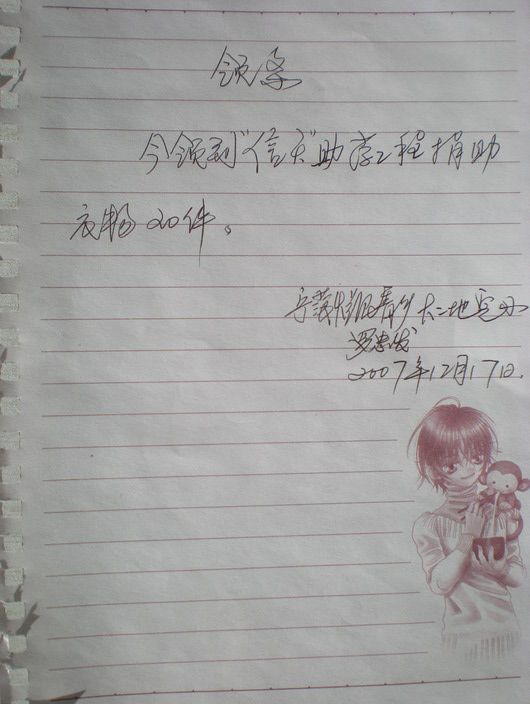 领条
今领到“信天”助学工程捐助
衣物20件。
宁蒗烂泥箐乡大二地完小
罗忠发
2007年12月17日.